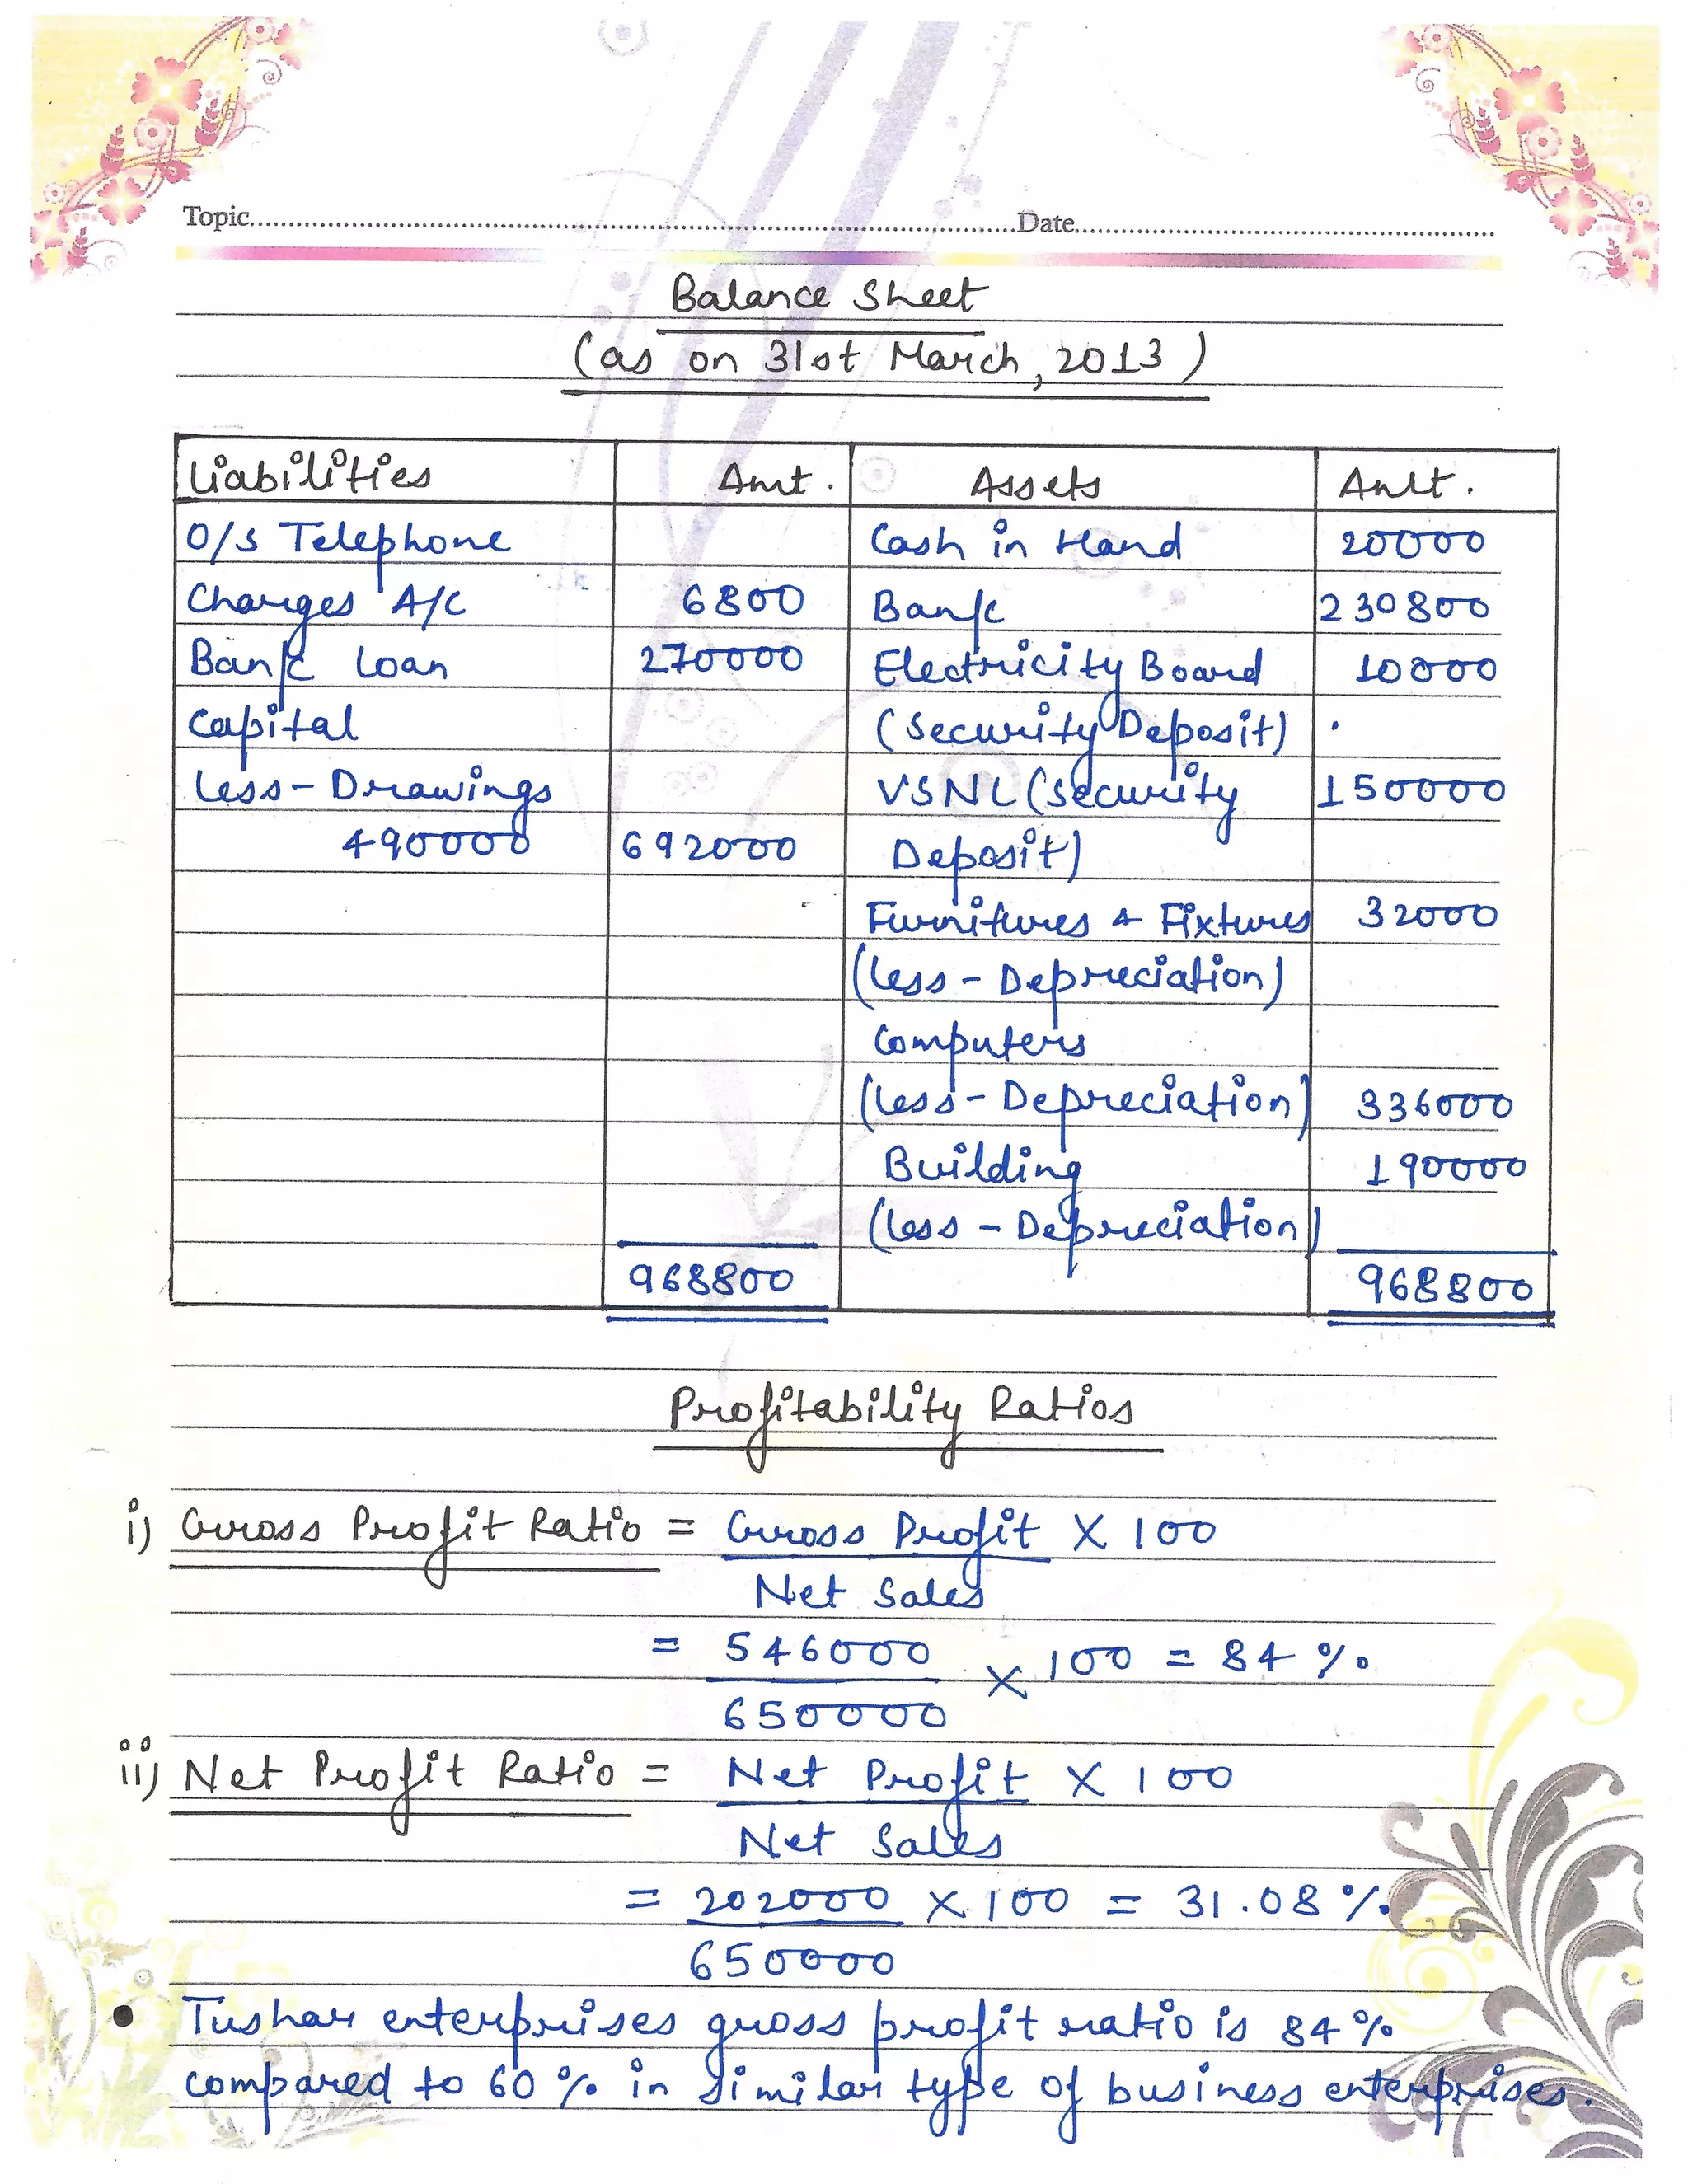 Topic..........Date..........
Balance Sheet
(as on 31st March, 2013)
Liabilities Amt. Assets Amt.
O/s Telephone Cash in Hand 20000
Charges A/c 6800 Bank 230800
Bank Loan 270000 Electricity Board 10000
Capital (Security Deposit)
Less - Drawings VSNL (Security 150000
490000 692000 Deposit)
Furnitures & Fixtures 32000
(Less - Depreciation)
Computers
(Less - Depreciation) 336000
Building 190000
(Less - Depreciation)
968800 968800
Profitability Ratios
i) Gross Profit Ratio = Gross Profit X 100
Net Sales
= 546000 X 100 = 84 %
650000
ii) Net Profit Ratio = Net Profit X 100
Net Sales
= 202000 X 100 = 31.08 %
650000
• Tushar enterprises gross profit ratio is 84%
compared to 60 % in similar type of business enterprises.